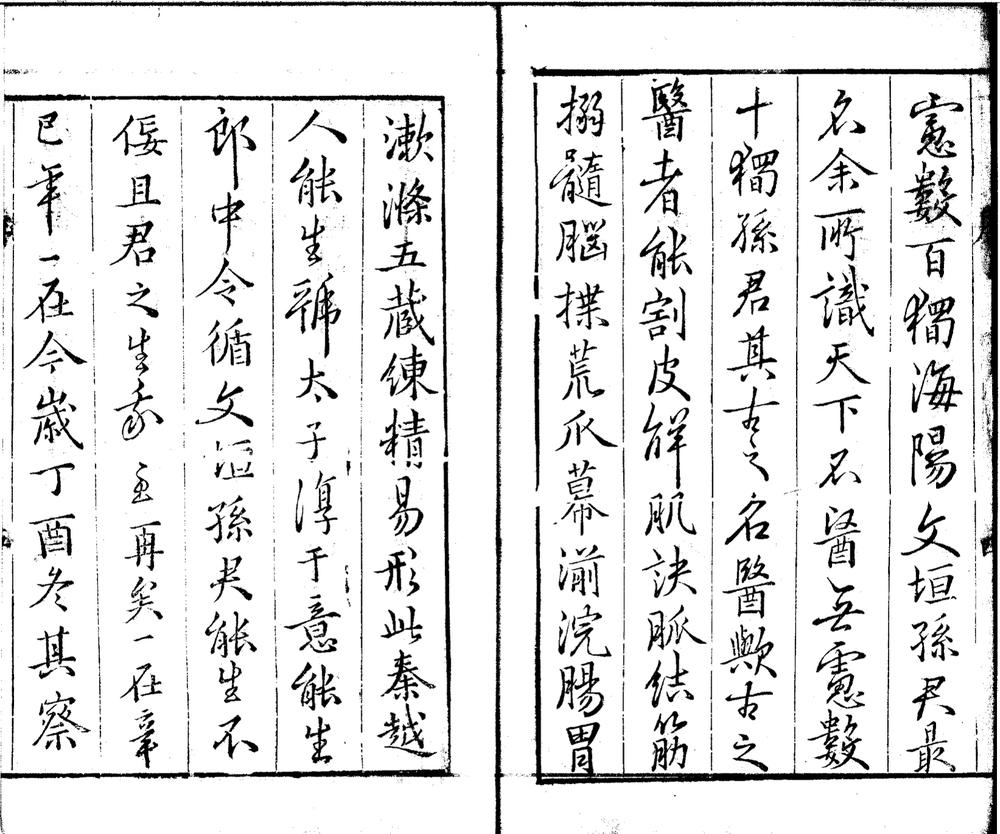 慮數百獨海陽文垣孫君最
名余所識天下名醫無慮數
十獨孫君其古之名醫歟古之
醫者能割皮解肌訣脈結筋
搦髓腦揲荒爪幕湔浣腸胃
漱滌五藏鍊精易形此秦越
人能生虢太子淳于意能生
郎中令循文垣孫君能生不
佞且君之生我至再矣一在辛
巳年一在今歲丁酉冬其察